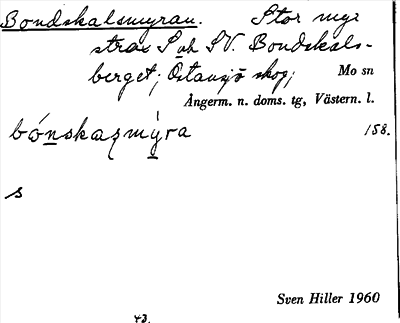 Bondskalsmyran. Stor myr
strax S och SV. Bondskals-
berget; Östansjö skog; Mo sn
Ångerm. n. doms. tg, Västern. l.
bónskaṣmýra 158.
s
Sven Hiller 1960